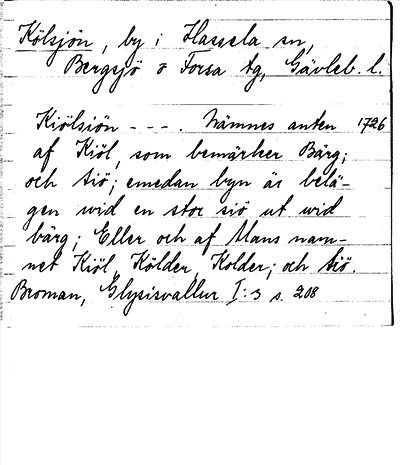 Kölsjön, by i Hassela sn,
Bergsjö o Forsa tg, Gävleb. l.
Kiölsiön - - - . Nämnes anten 1726
af Kiöl, som bemärker Bärg;
och siö; emedan byn är belä-
gen wid en stor siö ut wid
bärg; Eller och af Mans nam-
net Kiöl, Kölder, Kolder; och siö.
Broman, Glysisvallur I:3 s. 208